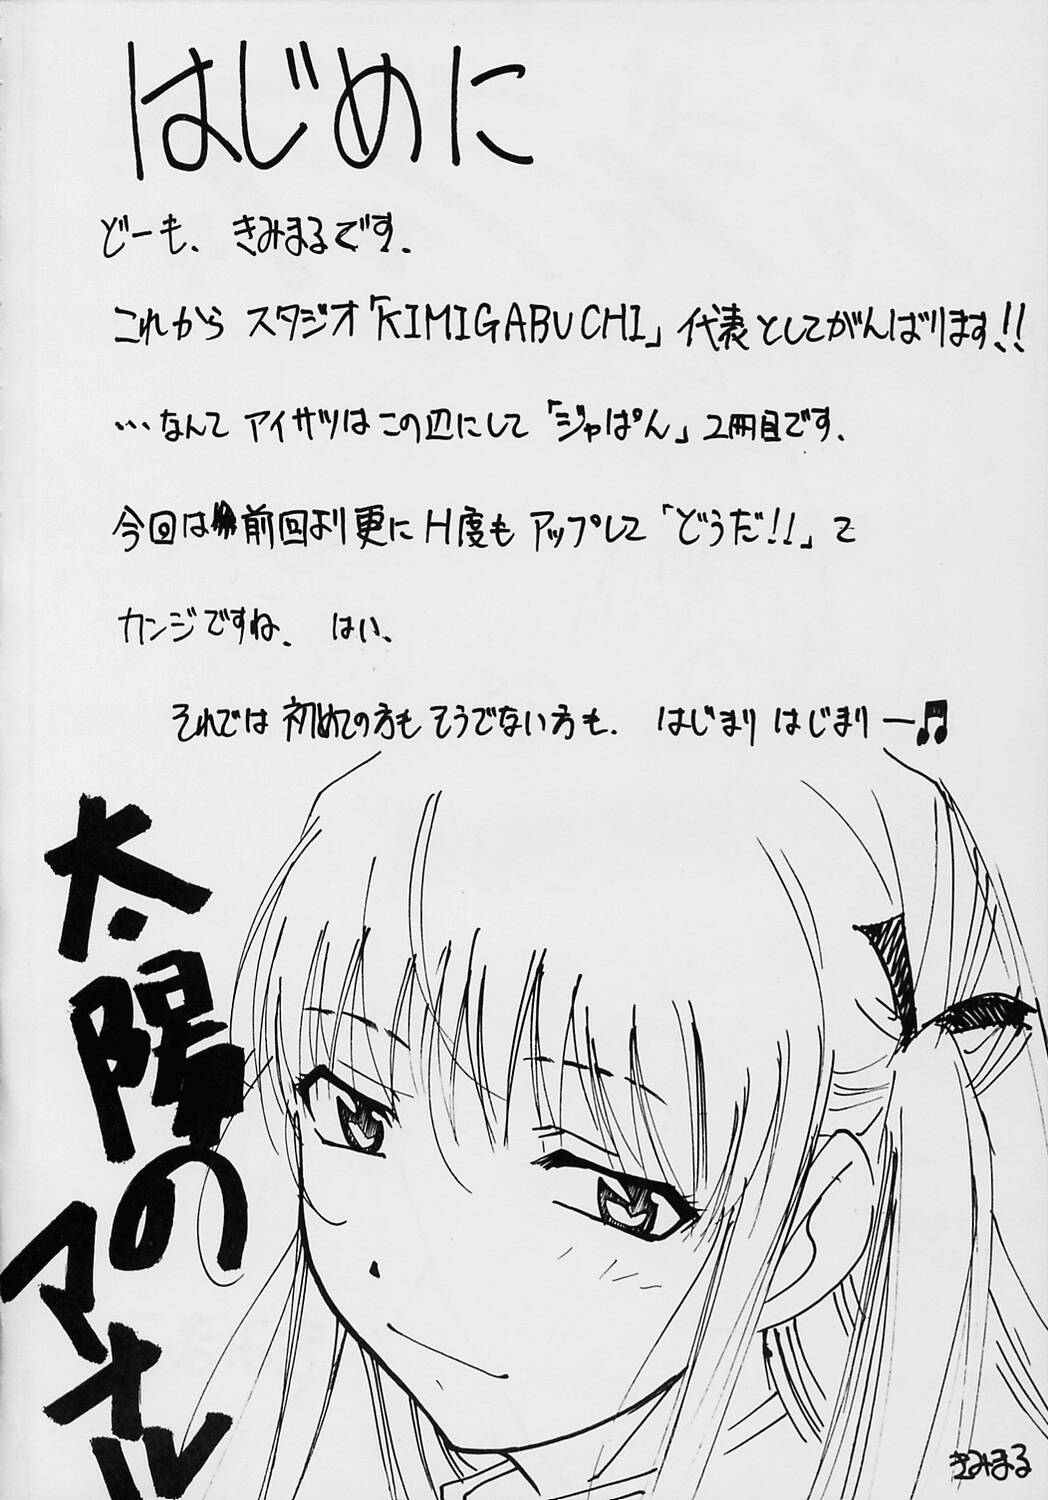 はじめに
どーも、きみまるです.
これから スタジオ「KIMIGABUCHI」代表としてがんばります!!
…なんて アイサツはこの辺にして「ジャぱん」2冊目です.
今回は前回より更にH度もアップして「どうだ!!」て
カンジですね. はい、
それでは 初めての方もそうでない方も. はじまり はじまりー♫
太陽の
マオル
きみまる